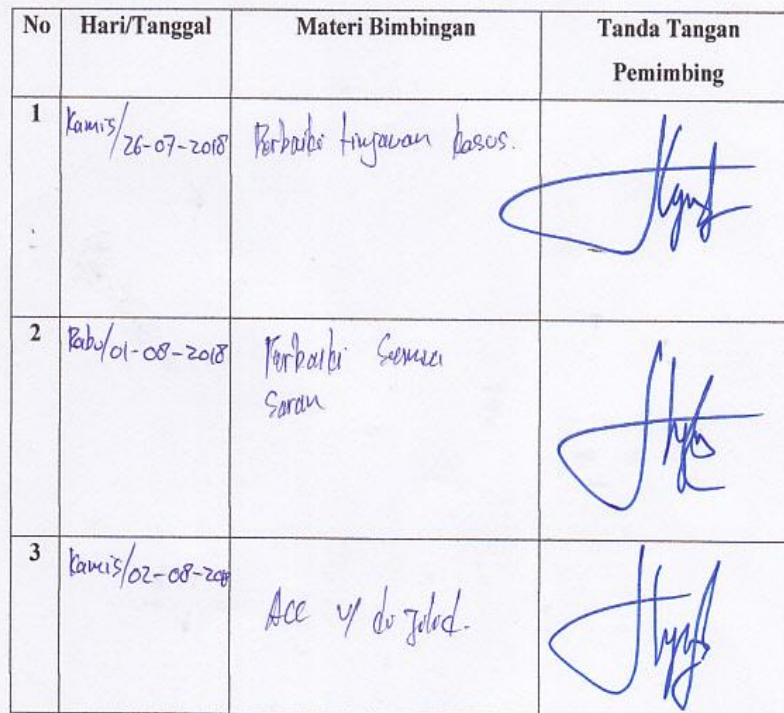 No Hari/Tanggal Materi Bimbingan Tanda Tangan
Pemimbing
1 Kamis/26-07-2018 Perbaiki tinjauan kasus.
2 Rabu/01-08-2018 Perbaiki Semua
Saran
3 Kamis/02-08-2018
Acc u/ di jilid.